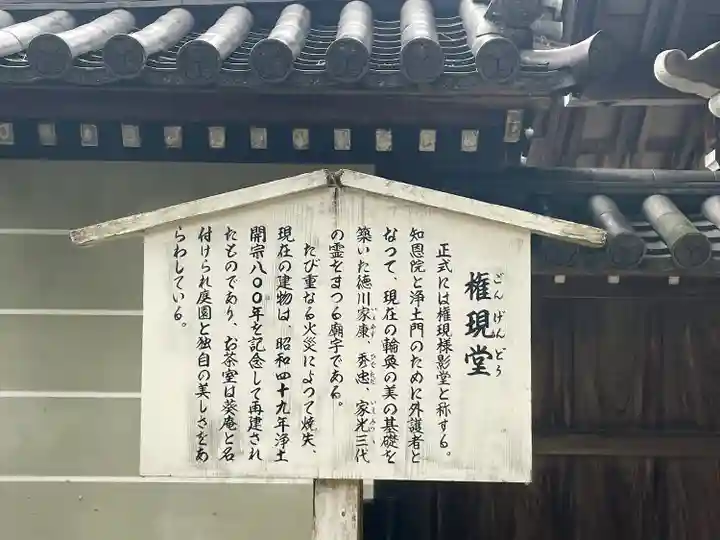 権現堂
ごんげんどう
正式には権現様影堂と称する。
知恩院と浄土門のために外護者と
なつて、現在の輪奐の美の基礎を
築いた徳川家康、秀忠、家光三代
の霊をまつる廟宇である。
たび重なる火災によつて焼失、
現在の建物は、昭和四十九年浄土
開宗八〇〇年を記念して再建され
たものであり、お茶室は葵庵と名
付けられ庭園と独自の美しさをあ
らわしている。